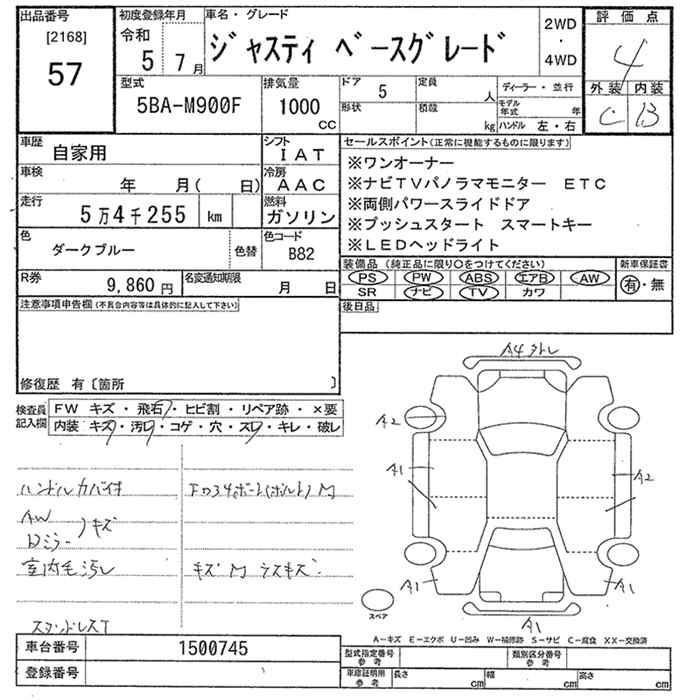 出品番号
[2168]
57
初度登録年月
令和
5 7月
車名・グレード
ジャスティ ベースグレード
2WD
・
4WD
評価点
4
外装 内装
C B
型式
5BA-M900F
排気量
1000
CC
ドア
5
定員
人
形状
積載
kg
ディーラー・並行
モデル年式 年
ハンドル 左・右
車歴
自家用
シフト
IAT
車検
年 月( 日)
冷房
AAC
走行
5万4千255 km
燃料
ガソリン
色
ダークブルー
色替
色コード
B82
R券
9,860円
名変通知期限
月 日
セールスポイント(正常に機能するものに限ります)
※ワンオーナー
※ナビTVパノラマモニター ETC
※両側パワースライドドア
※プッシュスタート スマートキー
※LEDヘッドライト
装備品(純正品に限り○をつけてください)
新車保証書
PS PW ABS エアB AW
SR ナビ TV カワ
有・無
後日品
注意事項申告欄(不具合内容等は具体的に記入して下さい)
修復歴 有〔箇所 〕
検査員記入欄
FW キズ・飛石・ヒビ割・リペア跡・×要
内装 キズ・汚レ・コゲ・穴・スレ・キレ・破レ
ハンドルカバー付
AW
Dミラー
キズ
室内毛汚レ
スタッドレスT
キズ M ラスキズ
A4 タトレ
A2
A1
A2
A1
A1
A1
スペア
A-キズ E-エクボ U-凹み W-補修跡 S-サビ C-腐食 XX-交換済
車台番号
1500745
登録番号
型式指定番号
参考
類別区分番号
参考
車庫証明用
参考
長さ cm
幅 cm
高さ cm